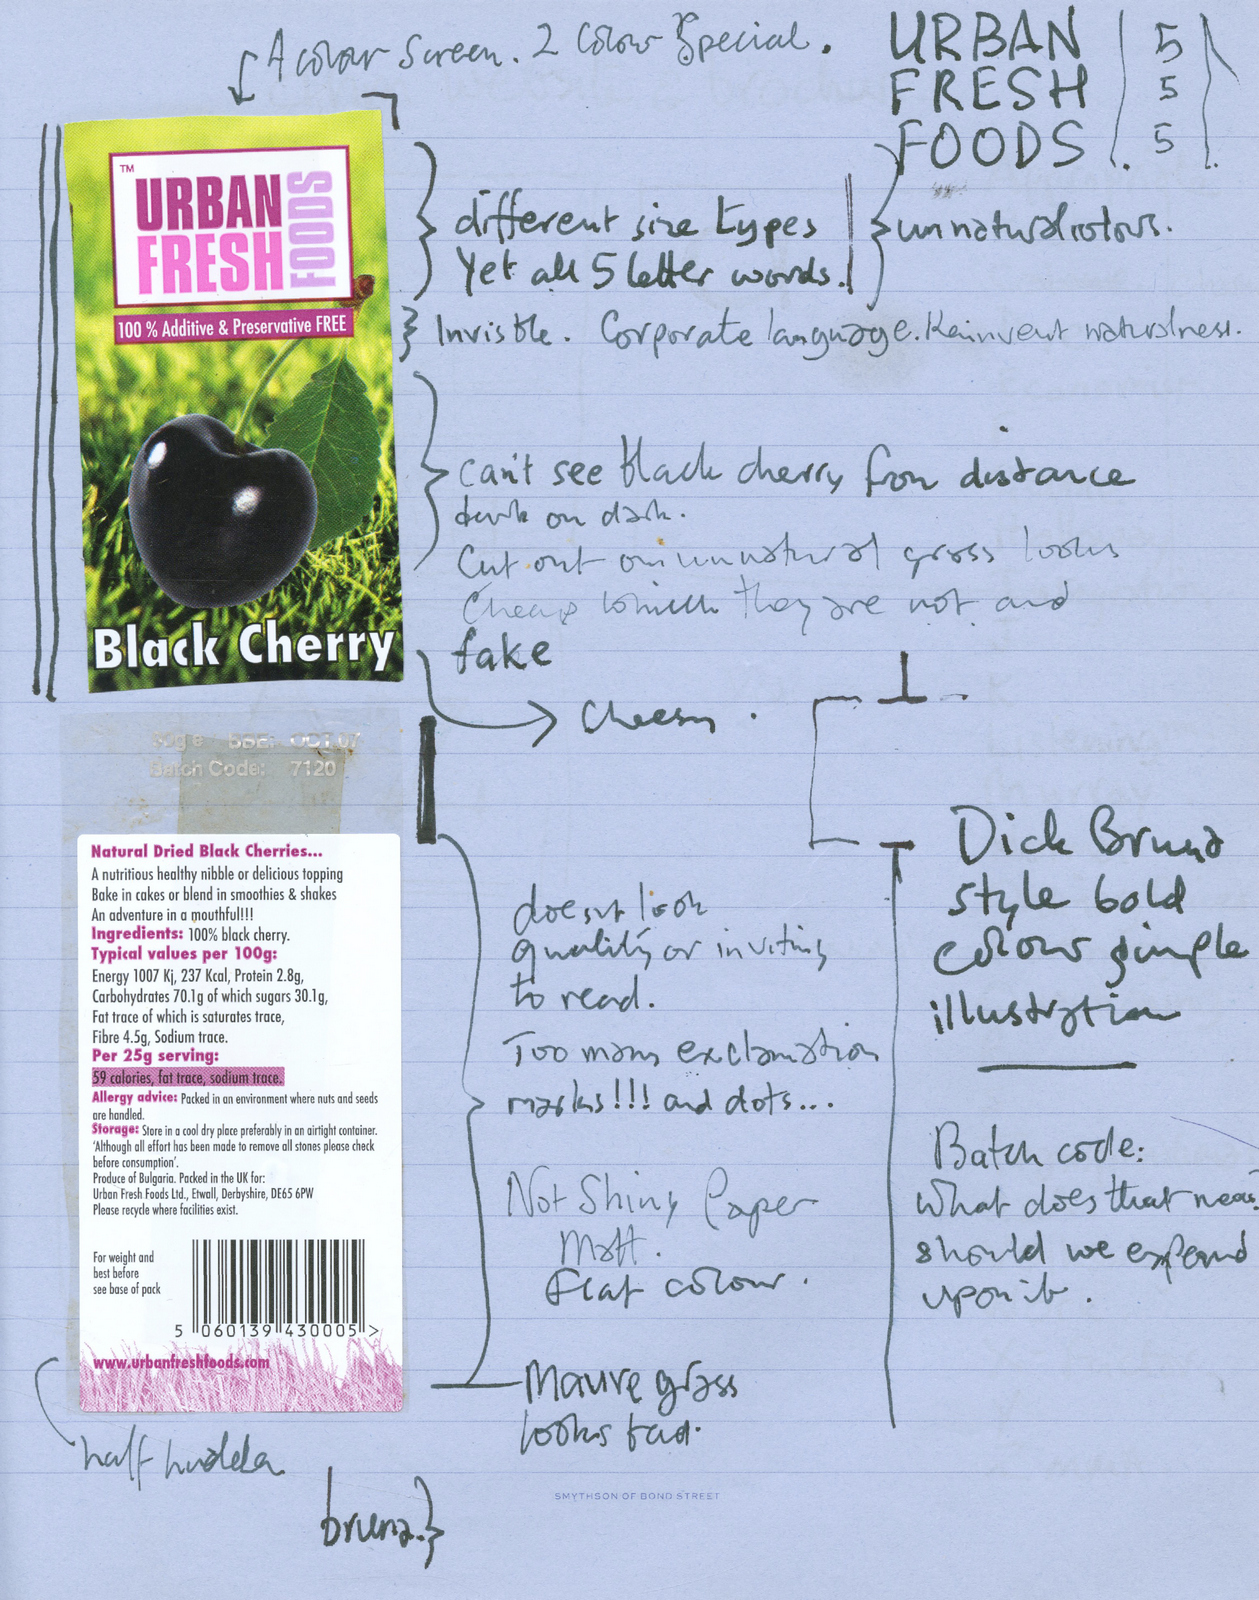 4 colour screen. 2 Colour Special.
URBAN 5
FRESH 5
FOODS 5
TM
URBAN
FRESH
FOODS
100 % Additive & Preservative FREE
Black Cherry
different size types
Yet all 5 letter words.
unnatural colours.
Invisble. Corporate language. Reinvent naturalness.
Can't see black cherry from distance
dark on dark.
Cut out on unnatural grass looks
Cheap which they are not and
fake
Cheesy.
BBE: OCT 07
Batch Code: 7120
Natural Dried Black Cherries...
A nutritious healthy nibble or delicious topping
Bake in cakes or blend in smoothies & shakes
An adventure in a mouthful!!!
Ingredients: 100% black cherry.
Typical values per 100g:
Energy 1007 Kj, 237 Kcal, Protein 2.8g,
Carbohydrates 70.1g of which sugars 30.1g,
Fat trace of which is saturates trace,
Fibre 4.5g, Sodium trace.
Per 25g serving:
59 calories, fat trace, sodium trace.
Allergy advice: Packed in an environment where nuts and seeds
are handled.
Storage: Store in a cool dry place preferably in an airtight container.
'Although all effort has been made to remove all stones please check
before consumption'.
Produce of Bulgaria. Packed in the UK for:
Urban Fresh Foods Ltd., Etwall, Derbyshire, DE65 6PW
Please recycle where facilities exist.
For weight and
best before
see base of pack
5 060139 430005 >
www.urbanfreshfoods.com
doesnt look
quality or inviting
to read.
Too many exclamation
marks!!! and dots...
Not Shiny Paper
Matt.
Flat colour.
Mauve grass
looks bad.
Dick Bruna
style bold
colour simple
illustration
Batch code:
What does that mean
should we expand
upon it.
half hidden
bruna.
SMYTHSON OF BOND STREET